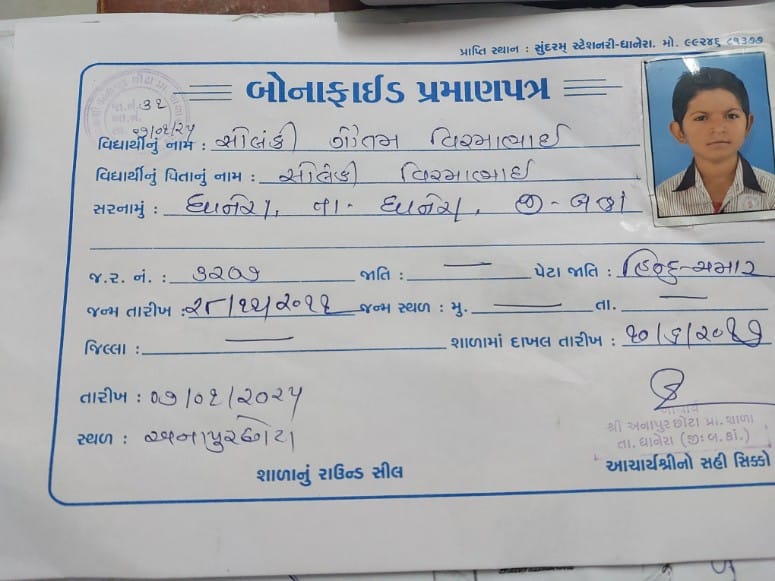 પ્રાપ્તિ સ્થાન : સુંદરમ્ સ્ટેશનરી-ધાનેરા. મો. ૯૯૨૪૬ ૮૧૩૭૭
બોનાફાઈડ પ્રમાણપત્ર
જા.નં. ૩૨
તા. ૦૭/૦૧/૨૫
વિદ્યાર્થીનું નામ : સોલંકી ગૌતમ વિરમાભાઈ
વિદ્યાર્થીનું પિતાનું નામ : સોલંકી વિરમાભાઈ
સરનામું : ધાનેરા, તા- ધાનેરા, જી-બ.કાં
જ.ર. નં. : ૩૨૦૭ જાતિ : — પેટા જાતિ : હિન્દુ-ચમાર
જન્મ તારીખ : ૨૮/૧૨/૨૦૧૧ જન્મ સ્થળ : મુ. — તા. —
જિલ્લા : — શાળામાં દાખલ તારીખ : ૧૦/૬/૨૦૧૭
તારીખ : ૦૭/૦૧/૨૦૨૫
સ્થળ : અનાપુરછોટા
આચાર્ય
શ્રી અનાપુર છોટા પ્રા. શાળા
તા. ધાનેરા (જી. બ.કાં.)
શાળાનું રાઉન્ડ સીલ આચાર્યશ્રીનો સહી સિક્કો